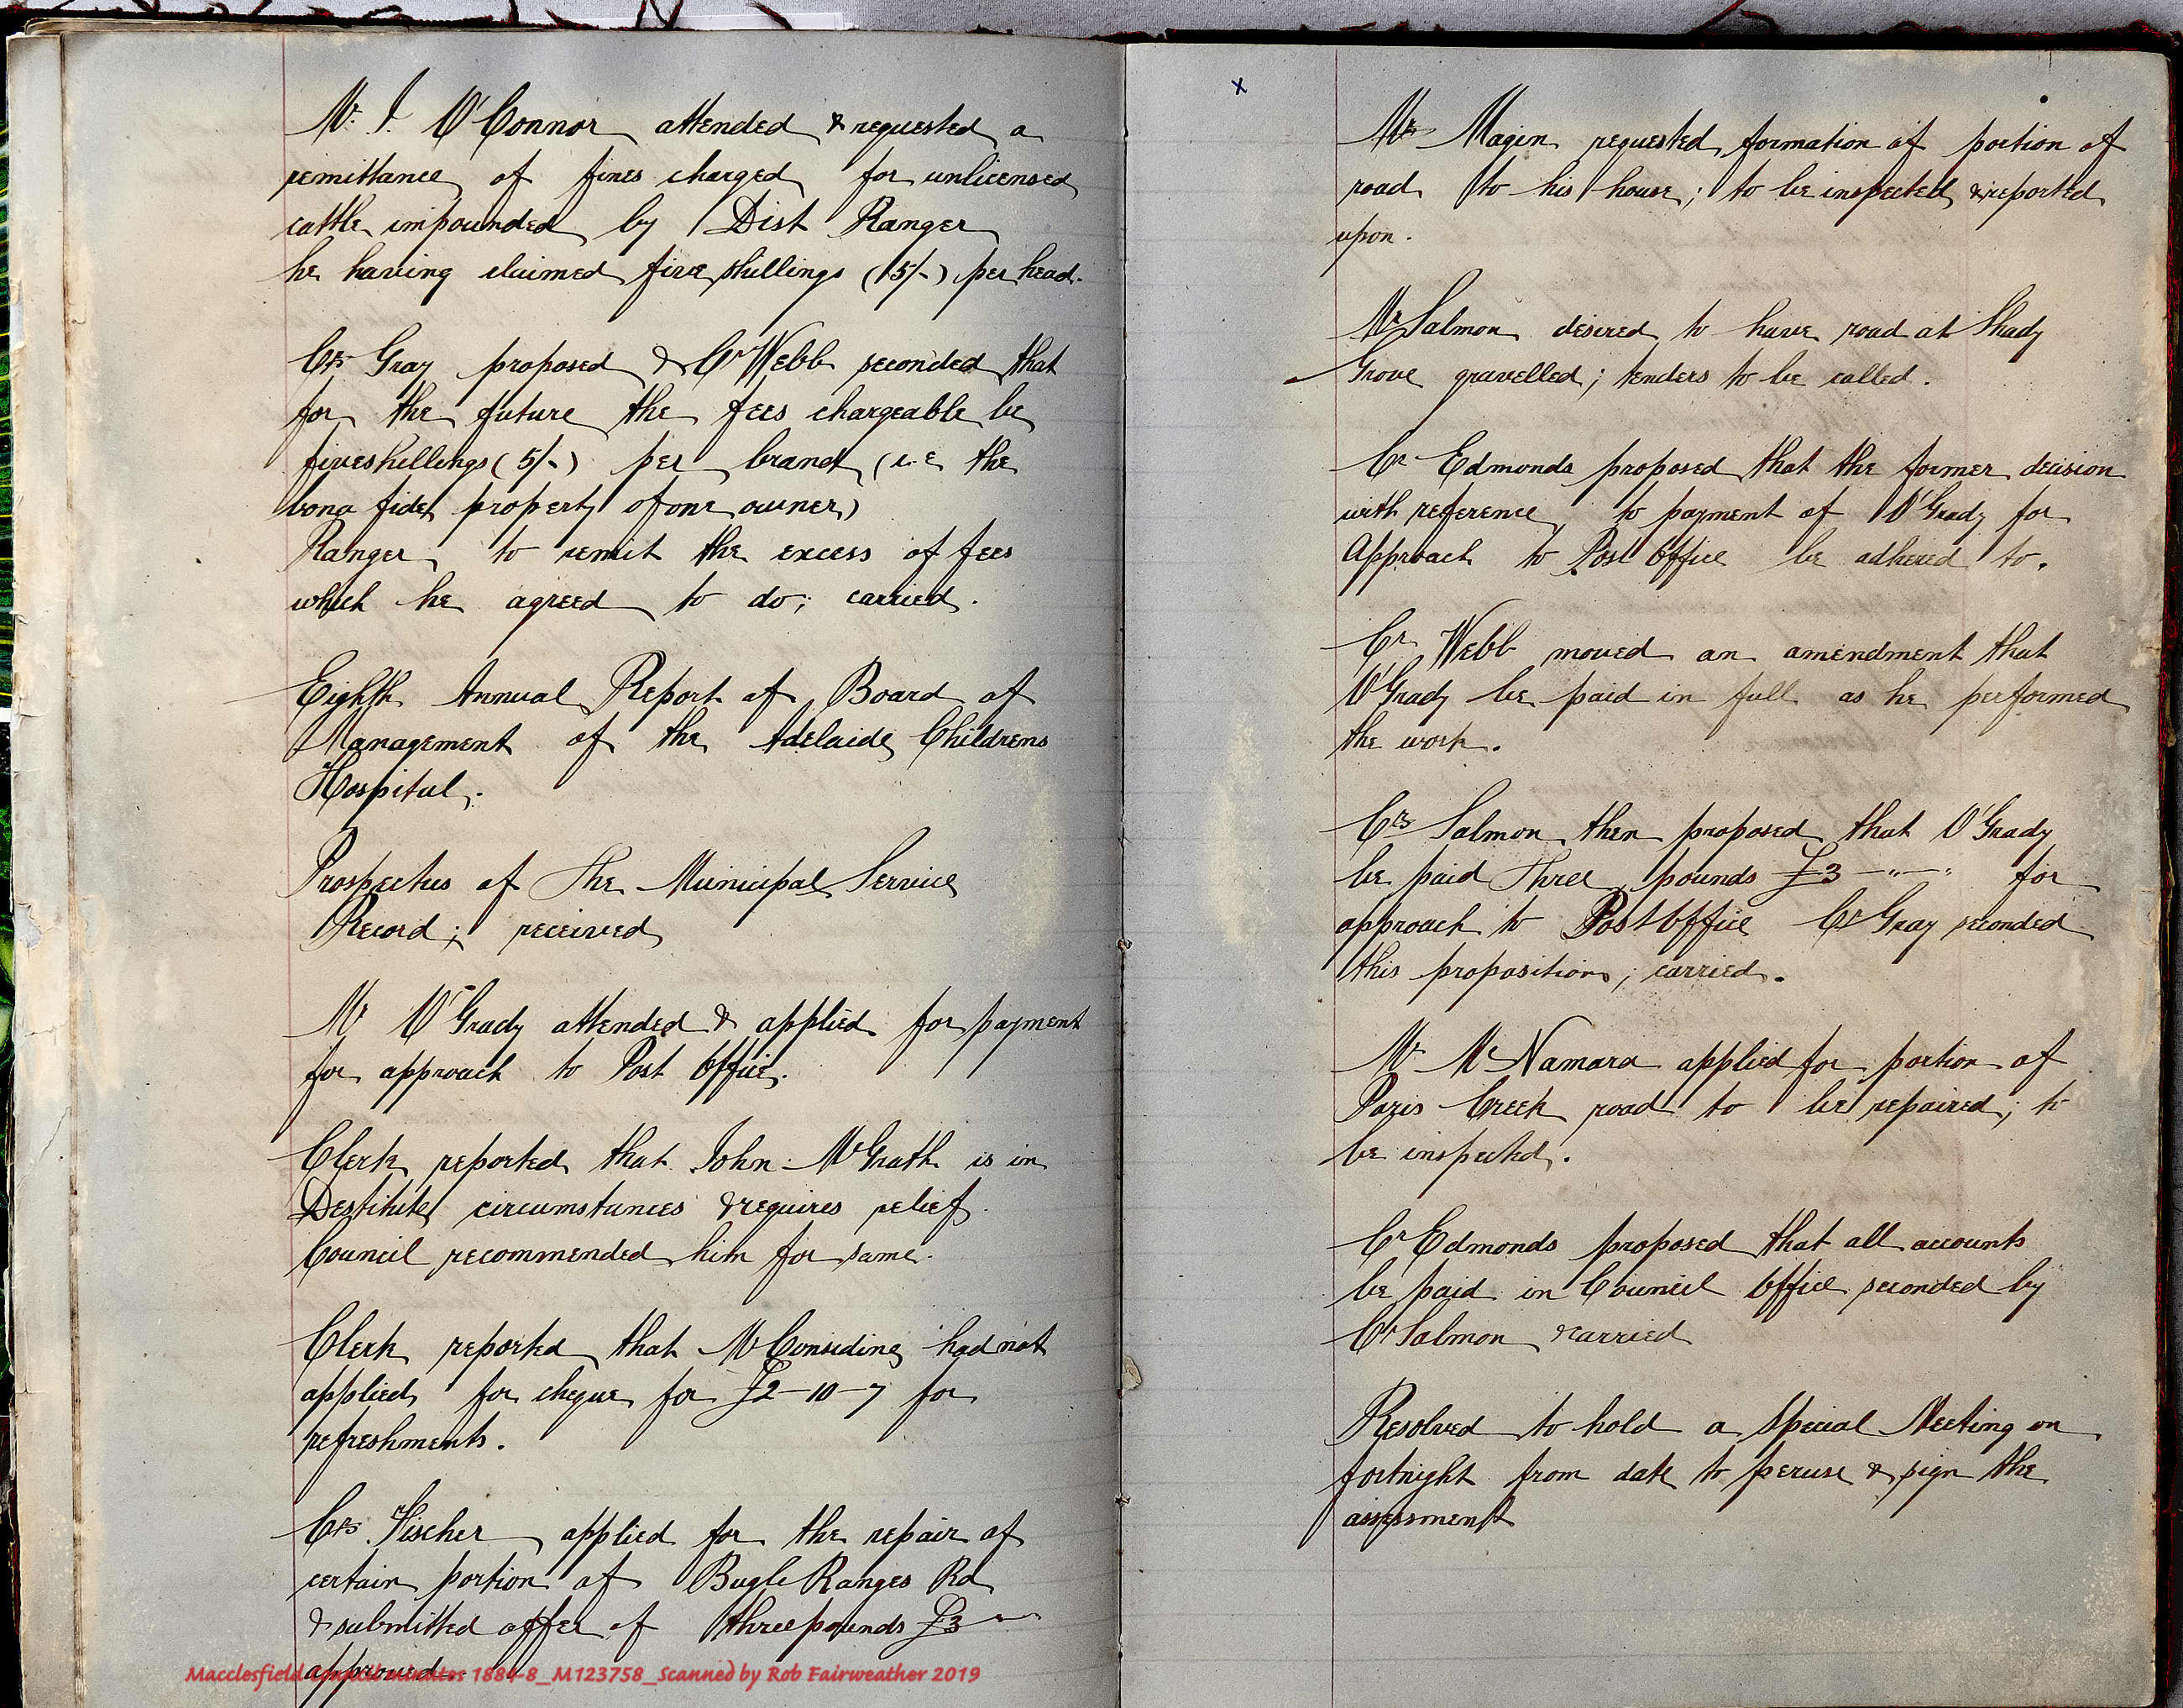 Mr. J. O'Connor attended & requested a
remittance of fines charged for unlicensed
cattle impounded by Dist Ranger
he having claimed five shillings (5/-) per head.
Cr Gray proposed & Cr Webb seconded that
for the future the fees chargeable be
five shillings (5/-) per brand (i.e the
bona fide property of one owner)
Ranger to remit the excess of fees
which he agreed to do; carried.
Eighth Annual Report of Board of
Management of the Adelaide Childrens
Hospital.
Prospectus of The Municipal Service
Record; received
Mr O'Grady attended & applied for payment
for approach to Post Office.
Clerk reported that John McGrath is in
Destitute circumstances & requires relief.
Council recommended him for same.
Clerk reported that Mr Considine had not
applied for cheque for £2-10-7 for
refreshments.
Cr Fischer applied for the repair of
certain portion of Bugle Ranges Rd
& submitted offer of three pounds £3
approved.
Macclesfield Council Minutes 1884-8_M123758_Scanned by Rob Fairweather 2019
x
Mr Magin requested formation of portion of
road to his house; to be inspected & reported
upon.
Mr Salmon desired to have road at Shady
Grove gravelled; tenders to be called.
Cr Edmonds proposed that the former decision
with reference to payment of O'Grady for
Approach to Post Office be adhered to.
Cr Webb moved an amendment that
O'Grady be paid in full as he performed
the work.
Cr Salmon then proposed that O'Grady
be paid Three pounds £3-"-" for
approach to Post Office Cr Gray seconded
this proposition; carried.
Mr McNamara applied for portion of
Paris Creek road to be repaired; to
be inspected.
Cr Edmonds proposed that all accounts
be paid in Council Office seconded by
Cr Salmon & carried
Resolved to hold a Special Meeting on
fortnight from date to peruse & sign the
assessment